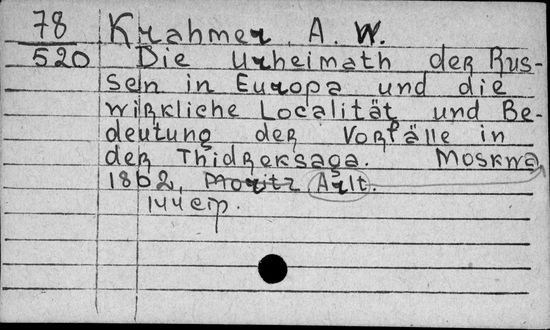 78 Krahmer, A. W.
520 Die Urheimath der Rus-
sen in Europa und die
wirkliche Localität und Be-
deutung der Vorfälle in
der Thidreksaga. Moskwa,
1862, Moritz Arlt.
144 стр.